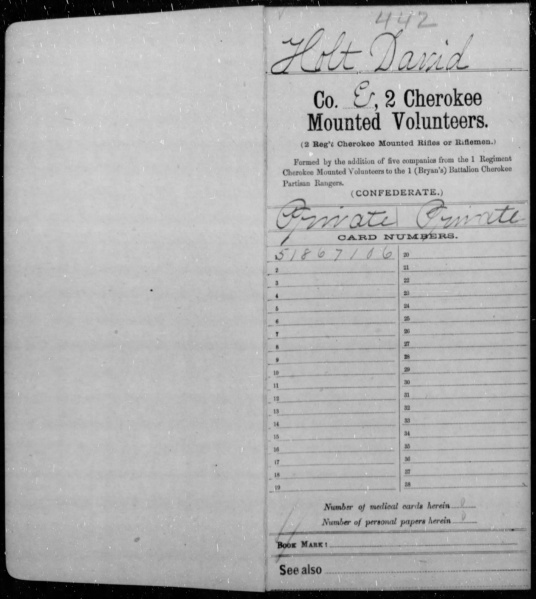 442
Holt David
Co. E, 2 Cherokee
Mounted Volunteers.
(2 Reg't Cherokee Mounted Rifles or Riflemen.)
Formed by the addition of five companies from the 1 Regiment
Cherokee Mounted Volunteers to the 1 (Bryan's) Battalion Cherokee
Partisan Rangers.
(CONFEDERATE.)
Private Private
CARD NUMBERS.
51867106 20
2 21
3 22
4 23
5 24
6 25
7 26
8 27
9 28
10 29
11 30
12 31
13 32
14 33
15 34
16 35
17 36
18 37
19 38
Number of medical cards herein 0
Number of personal papers herein 0
BOOK MARK:
See also